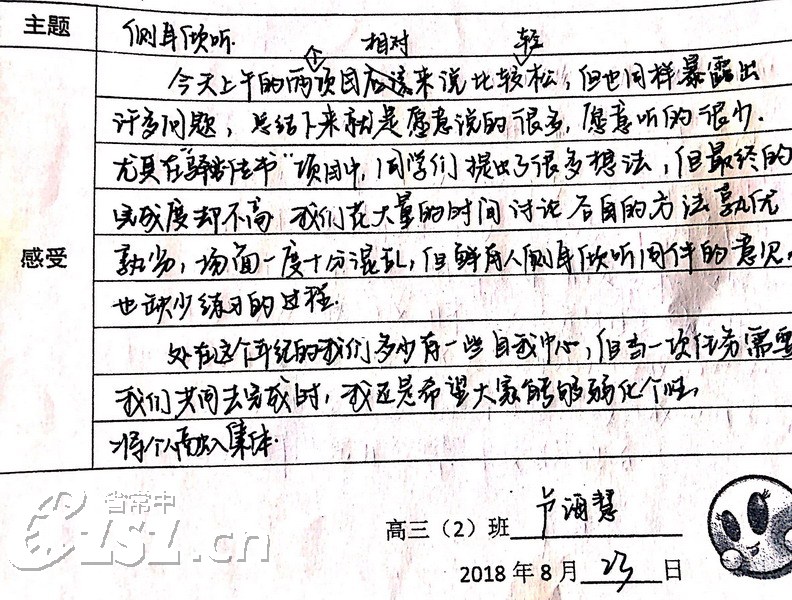 主题 侧身倾听.
个 相对 轻
今天上午的两项目应该来说比较松，但也同样暴露出
许多问题，总结下来就是愿意说的很多，愿意听的很少.
尤其在“驿站传书”项目中，同学们提出了很多想法，但最终的
完成度却不高 我们花大量的时间讨论各自的方法孰优
感受
孰劣，场面一度十分混乱，但鲜有人侧身倾听同伴的意见，
也缺少练习的过程.
处在这个年纪的我们多少有一些自我中心，但当一次任务需要
我们共同去完成时，我还是希望大家能够弱化个性，
将个人融入集体.
省常中
CSLSZ.cn
高三（2）班 卢海慧
2018年8月23日